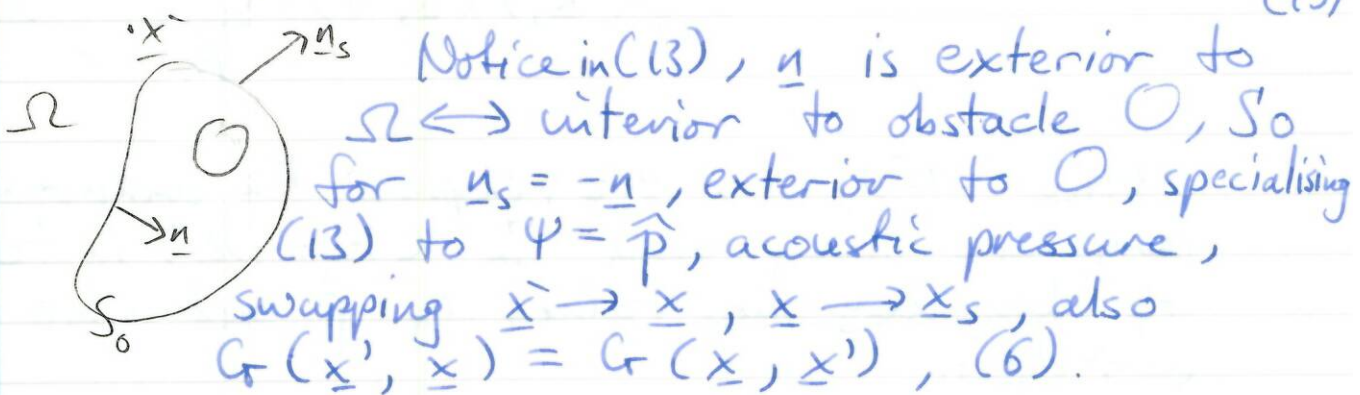 (13)
·x` n_s Notice in (13), n is exterior to
Ω Ω ⟷ interior to obstacle O, So
O for n_s = -n, exterior to O, specialising
n (13) to Ψ = p̂, acoustic pressure,
S₀ swapping x` → x, x → x_s, also
G(x', x) = G(x, x'), (6).